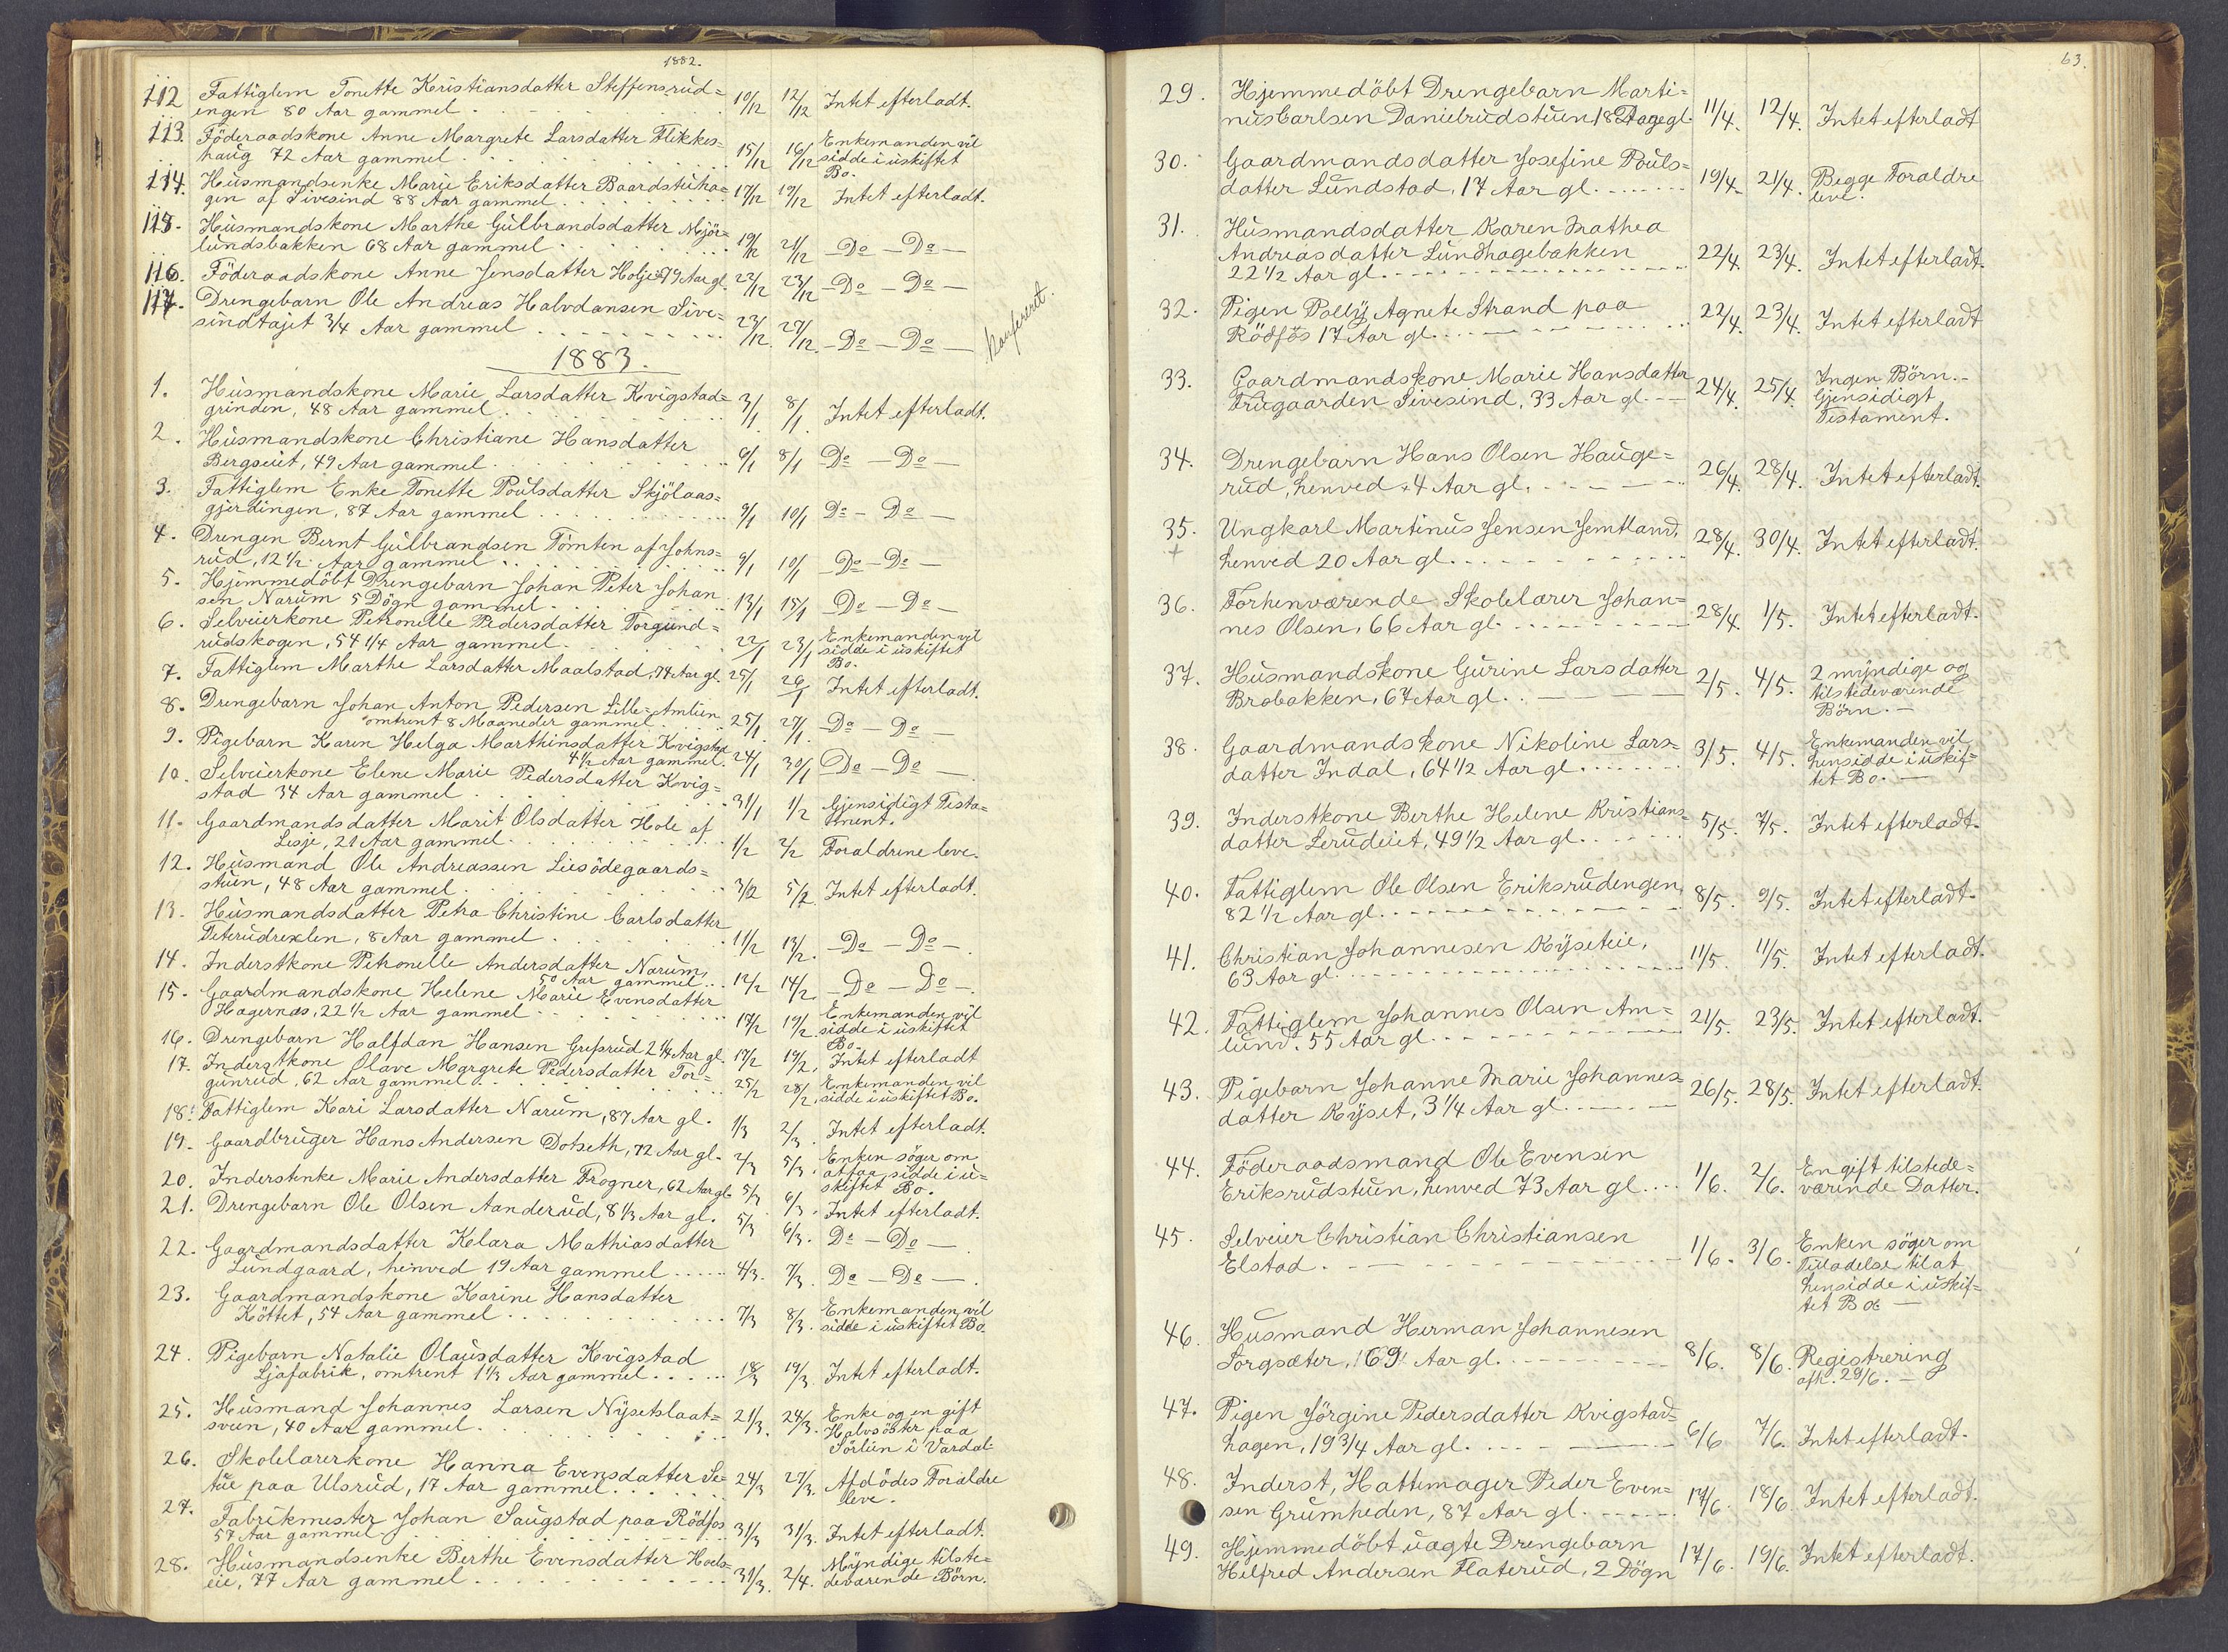 1882.
112 Fattiglem Tonette Kristiansdatter Steffensrud=
engen 80 Aar gammel . 10/12 12/12 Intet efterladt.
113. Föderaadskone Anne Margrete Larsdatter Flikkes=
haug 72 Aar gammel . 15/12 16/12 Enkemanden vil
sidde i uskiftet
Bo.
114. Husmandsenke Marie Eriksdatter Baardstuha=
gen af Sivesind 88 Aar gammel . 17/12 19/12 Intet efterladt.
115. Husmandskone Marthe Gulbrandsdatter Mjör=
lundsbakken 68 Aar gammel . 19/12 21/12 - Do - Do -
116. Föderaadskone Anne Jensdatter Holje 79 Aar gl. 22/12 23/12 - Do - Do -
117. Drengebarn Ole Andreas Halvdansen Sive=
sindtajet 3/4 Aar gammel 23/12. 27/12. - Do - Do -
Konfereret.
1883.
1. Husmandskone Marie Larsdatter Kvigstad=
grinden, 48 Aar gammel 3/1 8/1 Intet efterladt.
2. Husmandskone Christiane Hansdatter
Bergseiet, 49 Aar gammel. 9/1 8/1 Do - Do -
3. Fattiglem Enke Tonette Poulsdatter Skjölaas=
gjerdingen, 87 Aar gammel 9/1 10/1 Do - Do -
4. Drengen Bernt Gulbrandsen Tömten af Johns=
rud, 12 1/2 Aar gammel 9/1 10/1 Do - Do -
5. Hjemmedöbt Drengebarn Johan Peter Johan
sen Narum 5 Dögn gammel. 13/1 15/1 - Do - Do -
6. Selveierkone Petronelle Pedersdatter Torgund=
rudskogen, 54 1/4 Aar gammel. 22/1 23/1 Enkemanden vil
sidde i uskiftet
Bo.
7. Fattiglem Marthe Larsdatter Maalstad, 74 Aar gl. 25/1 26/1 Intet efterladt.
8. Drengebarn Johan Anton Pedersen Lille-Amlien
omtrent 8 Maaneder gammel. 25/1 27/1 - Do - Do -
9. Pigebarn Karen Helga Marthinsdatter Kvigstad
4 1/2 Aar gammel. 24/1 30/1 Do - Do -
10. Selveierkone Elene Marie Pedersdatter Kvig=
stad 34 Aar gammel 31/1 1/2 Gjensidigt Testa=
ment.
11. Gaardmandsdatter Marit Olsdatter Hole af
Lesje, 21 Aar gammel. 1/2 2/2 Foraldrene leve.
12. Husmand Ole Andreassen Liesödegaards=
stuen, 48 Aar gammel. 3/2 5/2. Intet efterladt.
13. Husmandsdatter Petra Christine Carlsdatter
Teterudrexlen, 8 Aar gammel. 11/2 13/2. - Do - Do -
14. Inderstkone Petronelle Andersdatter Narum,
50 Aar gammel. 12/2 14/2 - Do - Do -.
15. Gaardmandskone Helene Marie Evensdatter
Hagernæs, 22 1/2 Aar gammel 17/2 19/2. Enkemanden vil
sidde i uskiftet
Bo.
16. Drengebarn Halfdan Hansen Grefsrud 2 1/4 Aar gl. 17/2 19/2. Intet efterladt
17. Inderstkone Olave Margrete Pedersdatter Tor=
gunrud, 62 Aar gammel 25/2 28/2. Enkemanden vil
sidde i uskiftet Bo.
18. Fattiglem Kari Larsdatter Narum, 87 Aar gl. 1/3 2/3. Intet efterladt.
19. Gaardbruger Hans Andersen Dotseth, 72 Aar gl. 2/3 5/3. Enken söger om
at faa sidde i u=
skiftet Bo.
20. Inderstenke Marie Andersdatter Frogner, 62 Aar gl. 5/3 6/3. Intet efterladt.
21. Drengebarn Ole Olsen Aanderud, 8 1/3 Aar gl. 5/3 6/3. Do - Do -
22. Gaardmandsdatter Klara Mathiasdatter
Lundgaard, henved 19 Aar gammel 4/3. 7/3. Do - Do -.
23. Gaardmandskone Karine Hansdatter
Köttet, 54 Aar gammel 7/3 8/3. Enkemanden vil
sidde i uskiftet Bo.
24. Pigebarn Natalie Olausdatter Kvigstad
Ljafabrik, omtrent 1 1/3 Aar gammel 18/3 19/3. Intet efterladt.
25. Husmand Johannes Larsen Nysetslaat=
sveen, 40 Aar gammel. 21/3. 24/3. Enke og en gift
Halvsöster paa
Sörlien i Vardal.
26. Skolelærerkone Hanna Evensdatter Se=
tue paa Ulsrud, 17 Aar gammel 24/3 27/3. Afdödes Foraldre
leve.
27. Fabrikmester Johan Saugstad paa Rödfos
57 Aar gammel 31/3 31/3. Intet efterladt.
28. Husmandsenke Berthe Evensdatter Hoels=
eie, 77 Aar gammel 31/3. 2/4. Myndige tilste=
deværende Börn.
63.
29. Hjemmedöbt Drengebarn Marti=
nus Carlsen Danielrudstuen 18 Dage gl. 11/4. 12/4. Intet efterladt
30. Gaardmandsdatter Josefine Pouls=
datter Lundstad, 17 Aar gl. 19/4. 21/4. Begge Foraldre
leve.
31. Husmandsdatter Karen Mathea
Andreasdatter Lundhagebakken
22 1/2 Aar gl. 22/4. 23/4. Intet efterladt.
32. Pigen Polly Agnete Strand paa
Rödfös 17 Aar gl. 22/4. 23/4. Intet efterladt
33. Gaardmandskone Marie Hansdatter
Frugaarden Sivesind, 33 Aar gl. 24/4. 25/4. Ingen Börn.-
Gjensidigt
Testament.
34. Drengebarn Hans Olsen Hauge=
rud, henved 4 Aar gl. 26/4. 28/4. Intet efterladt.
35. Ungkarl Martinus Jensen Jemtland,
+ henved 20 Aar gl. 28/4. 30/4. Intet efterladt.
36. Forhenværende Skolelærer Johan=
nes Olsen, 66 Aar gl. 28/4. 1/5. Intet efterladt.
37. Husmandskone Gurine Larsdatter
Brobakken, 67 Aar gl. 2/5. 4/5. 2 myndige og
tilstedeværende
Börn. -
38. Gaardmandskone Nikoline Lars=
datter Indal, 64 1/2 Aar gl. 3/5. 4/5. Enkemanden vil
hensidde i uskif=
tet Bo. -
39. Inderstkone Berthe Helene Kristians=
datter Lerudeiet, 49 1/2 Aar gl. 5/5. 7/5. Intet efterladt.
40. Fattiglem Ole Olsen Eriksrudengen,
82 1/2 Aar gl. 8/5. 9/5. Intet efterladt.
41. Christian Johannesen Ryseteie,
63 Aar gl. 11/5. 11/5. Intet efterladt.
42. Fattiglem Johannes Olsen Am=
lund. 55 Aar gl. 21/5. 23/5. Intet efterladt.
43. Pigebarn Johanne Marie Johannes=
datter Ryset, 3 1/4 Aar gl. 26/5. 28/5. Intet efterladt.
44. Föderaadsmand Ole Evensen
Eriksrudstuen, henved 73 Aar gl. 1/6. 2/6. En gift tilstede=
værende Datter.
45. Selveier Christian Christiansen
Elstad. 1/6. 3/6. Enken söger om
Tilladelse til at
hensidde i uskif=
tet Bo -
46. Husmand Herman Johannesen
Sorgsæter, 69 Aar gl. 8/6. 8/6. Registrering
afh. 29/6. -
47. Pigen Jörgine Pedersdatter Kvigstad=
hagen, 19 3/4 Aar gl. 6/6 7/6. Intet efterladt.
48. Inderst, Hattemager Peder Even=
sen Grumheden, 87 Aar gl. 17/6. 18/6. Intet efterladt.
49. Hjemmedöbt uægte Drengebarn
Hilfred Andersen Flaterud, 2 Dögn 17/6. 19/6. Intet efterladt.